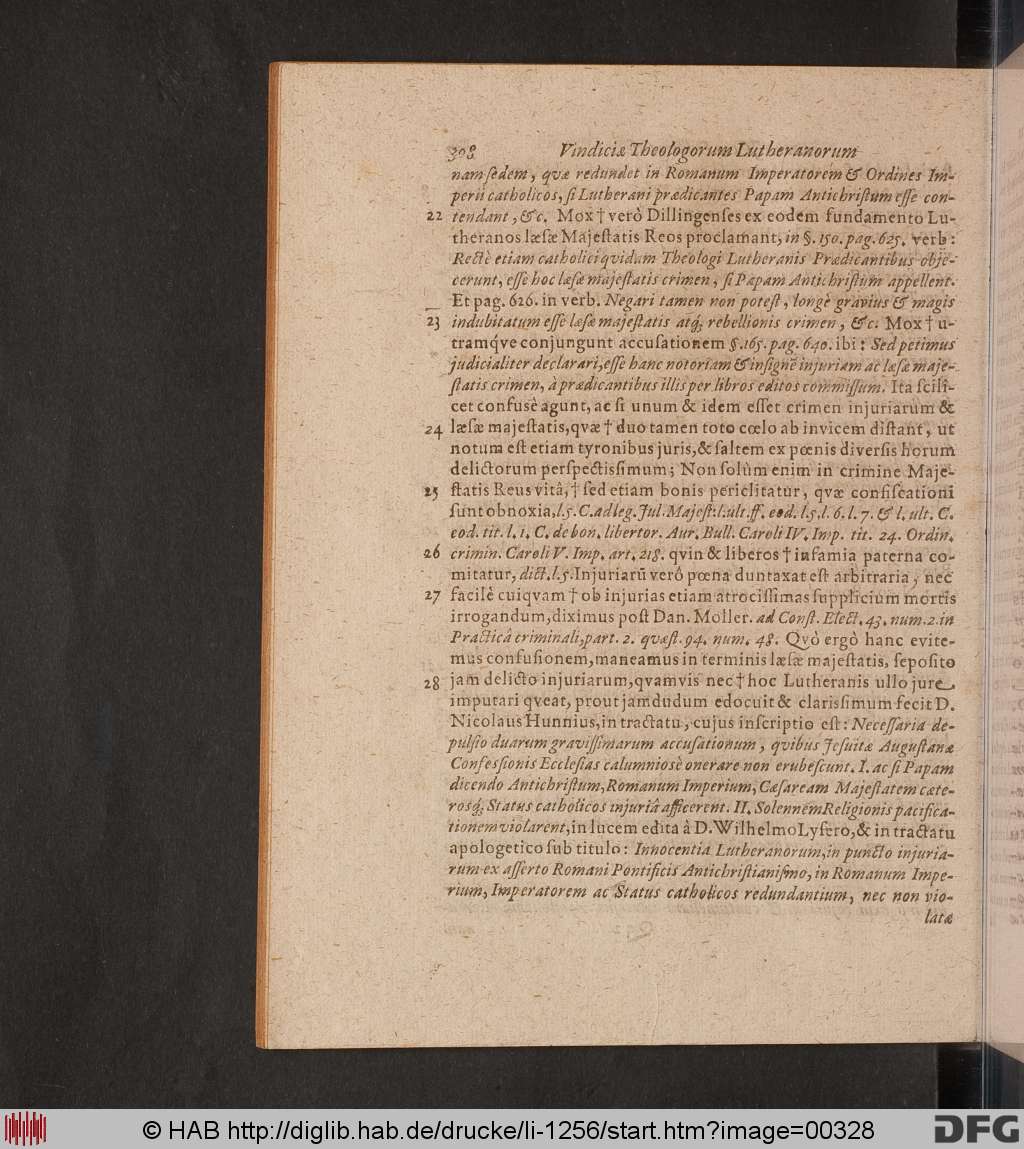 308 Vindiciæ Theologorum Lutheranorum
nam ſedem, qvæ redundet in Romanum Imperatorem & Ordines Im-
perii catholicos, ſi Lutherani prædicantes Papam Antichriſtum eſſe con-
22 tendant, &c. Mox † verò Dillingenſes ex eodem fundamento Lu-
theranos læſæ Majeſtatis Reos proclamant, in §. 150. pag. 625. verb:
Rectè etiam catholici qvidam Theologi Lutheranis Prædicantibus obje-
cerunt, eſſe hoc læſæ majeſtatis crimen, ſi Papam Antichriſtum appellent.
Et pag. 626. in verb. Negari tamen non poteſt, longè gravius & magis
23 indubitatum eſſe læſæ majeſtatis atq; rebellionis crimen, &c. Mox † u-
tramqve conjungunt accuſationem §. 165. pag. 640. ibi: Sed petimus
judicialiter declarari, eſſe hanc notoriam & inſignē injuriam ac læſæ maje-
ſtatis crimen, à prædicantibus illis per libros editos commiſſum. Ita ſcili-
cet confusè agunt, ac ſi unum & idem eſſet crimen injuriarum &
24 læſæ majeſtatis, qvæ † duo tamen toto cœlo ab invicem diſtant, ut
notum eſt etiam tyronibus juris, & ſaltem ex pœnis diverſis horum
delictorum perſpectiſſimum; Non ſolùm enim in crimine Maje-
25 ſtatis Reus vitâ, † ſed etiam bonis periclitatur, qvæ confiſcationi
ſunt obnoxia, l. 5. C. ad leg. Jul. Majeſt. l. ult. ff. eod. l. 5. l. 6. l. 7. & l. ult. C.
eod. tit. l. 1. C. de bon. libertor. Aur. Bull. Caroli IV. Imp. tit. 24. Ordin.
26 crimin. Caroli V. Imp. art. 218. qvin & liberos † infamia paterna co-
mitatur, dict. l. 5. Injuriarū verò pœna duntaxat eſt arbitraria, nec
27 facilè cuiqvam † ob injurias etiam atrociſſimas ſupplicium mortis
irrogandum, diximus poſt Dan. Moller. ad Conſt. Elect. 43. num. 2. in
Practicâ criminali, part. 2. qvæſt. 94. num. 48. Qvò ergò hanc evite-
mus confuſionem, maneamus in terminis læſæ majeſtatis, ſepoſito
28 jam delicto injuriarum, qvamvis nec † hoc Lutheranis ullo jure
imputari qveat, prout jamdudum edocuit & clariſſimum fecit D.
Nicolaus Hunnius, in tractatu, cujus inſcriptio eſt: Neceſſaria de-
pulſio duarum graviſſimarum accuſationum, qvibus Jeſuitæ Auguſtanæ
Confeſſionis Eccleſias calumniosè onerare non erubeſcunt. I. ac ſi Papam
dicendo Antichriſtum, Romanum Imperium, Cæſaream Majeſtatem cæte-
rosq; Status catholicos injuriâ afficerent. II. Solennem Religionis pacifica-
tionem violarent, in lucem edita à D. Wilhelmo Lyſero, & in tractatu
apologetico ſub titulo: Innocentia Lutheranorum, in puncto injuria-
rum ex aſſerto Romani Pontificis Antichriſtianiſmo, in Romanum Impe-
rium, Imperatorem ac Status catholicos redundantium, nec non vio-
latæ
© HAB http://diglib.hab.de/drucke/li-1256/start.htm?image=00328
DFG